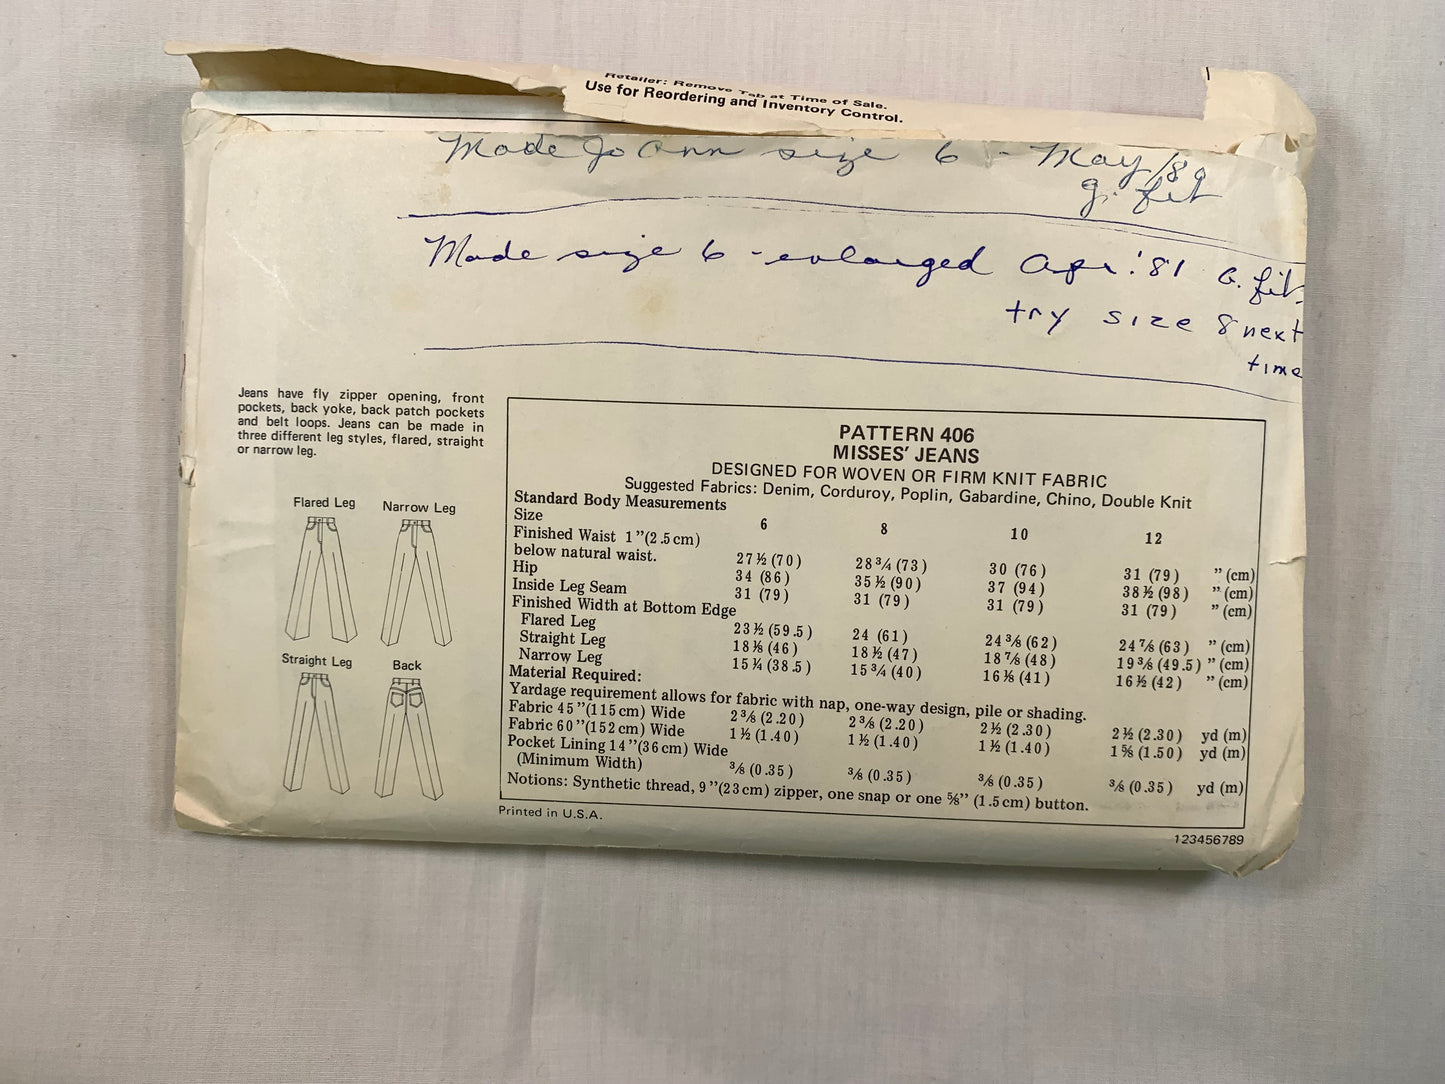 Retailer: Remove Tab at Time of Sale.
Use for Reordering and Inventory Control.
Made Jo Ann size 6 - May/89
g. fit
Made size 6 - enlarged Apr. '81 G. fit.
try size 8 next
time
Jeans have fly zipper opening, front
pockets, back yoke, back patch pockets
and belt loops. Jeans can be made in
three different leg styles, flared, straight
or narrow leg.
Flared Leg
Narrow Leg
Straight Leg
Back
PATTERN 406
MISSES' JEANS
DESIGNED FOR WOVEN OR FIRM KNIT FABRIC
Suggested Fabrics: Denim, Corduroy, Poplin, Gabardine, Chino, Double Knit
Standard Body Measurements
Size 6 8 10 12
Finished Waist 1"(2.5cm)
below natural waist. 27½ (70) 28¾ (73) 30 (76) 31 (79) "(cm)
Hip 34 (86) 35½ (90) 37 (94) 38½ (98) "(cm)
Inside Leg Seam 31 (79) 31 (79) 31 (79) 31 (79) "(cm)
Finished Width at Bottom Edge
Flared Leg 23½ (59.5) 24 (61) 24⅜ (62) 24⅞ (63) "(cm)
Straight Leg 18⅛ (46) 18½ (47) 18⅞ (48) 19⅜ (49.5) "(cm)
Narrow Leg 15¼ (38.5) 15¾ (40) 16⅛ (41) 16½ (42) "(cm)
Material Required:
Yardage requirement allows for fabric with nap, one-way design, pile or shading.
Fabric 45"(115cm) Wide 2⅜ (2.20) 2⅜ (2.20) 2½ (2.30) 2½ (2.30) yd (m)
Fabric 60"(152cm) Wide 1½ (1.40) 1½ (1.40) 1½ (1.40) 1⅝ (1.50) yd (m)
Pocket Lining 14"(36cm) Wide
(Minimum Width) ⅜ (0.35) ⅜ (0.35) ⅜ (0.35) ⅜ (0.35) yd (m)
Notions: Synthetic thread, 9"(23cm) zipper, one snap or one ⅝" (1.5cm) button.
Printed in U.S.A.
123456789